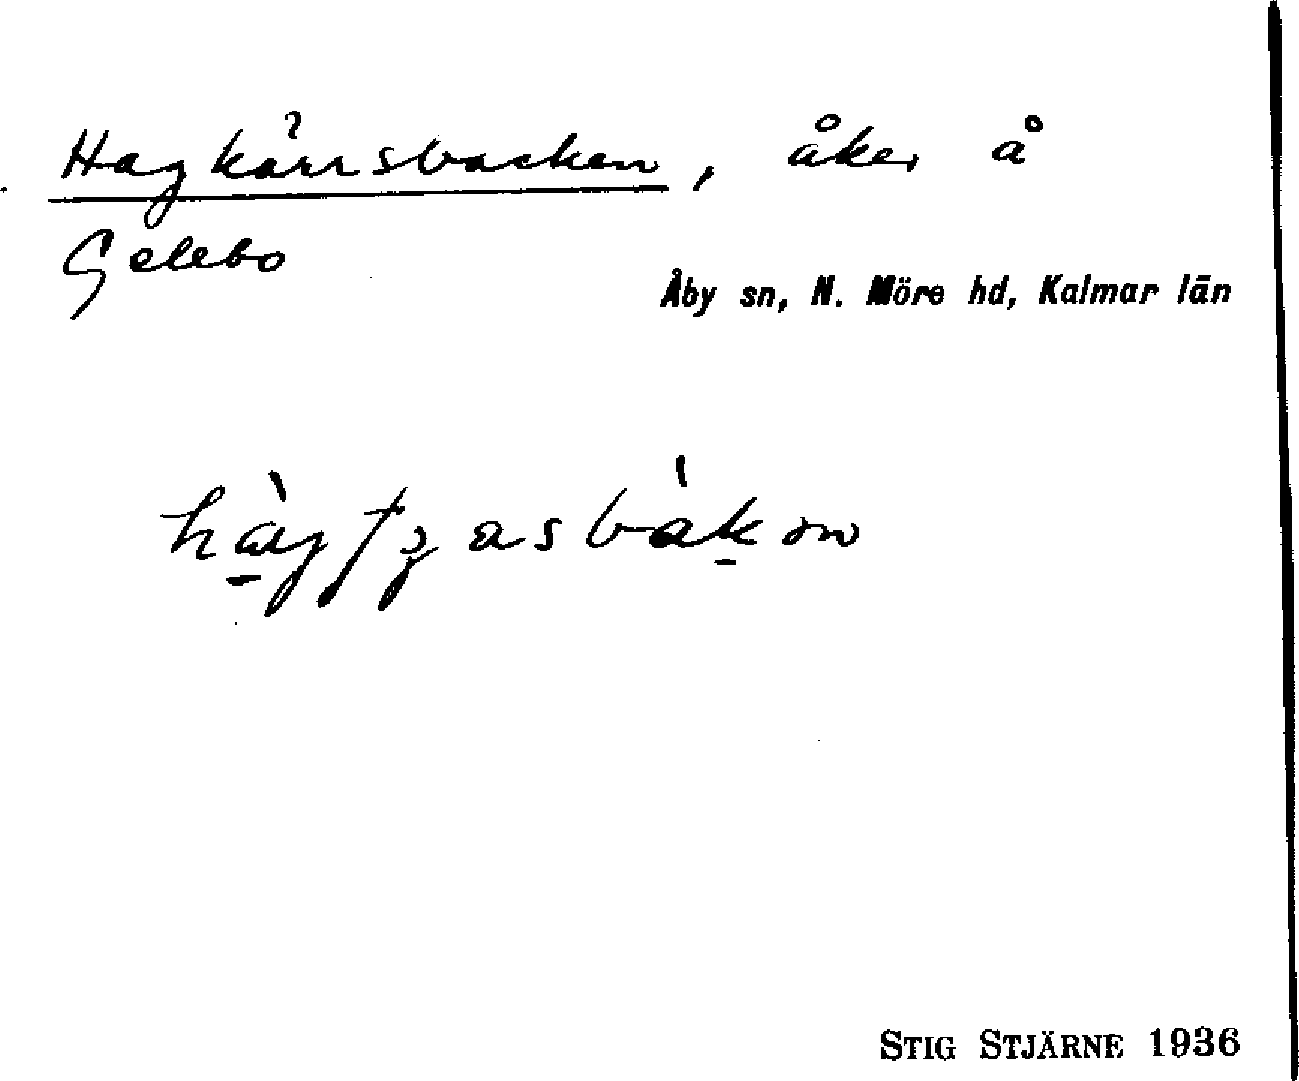 Hagkärrsbacken, åker å
Gelebo
Åby sn, N. Möre hd, Kalmar län
STIG STJÄRNE 1936